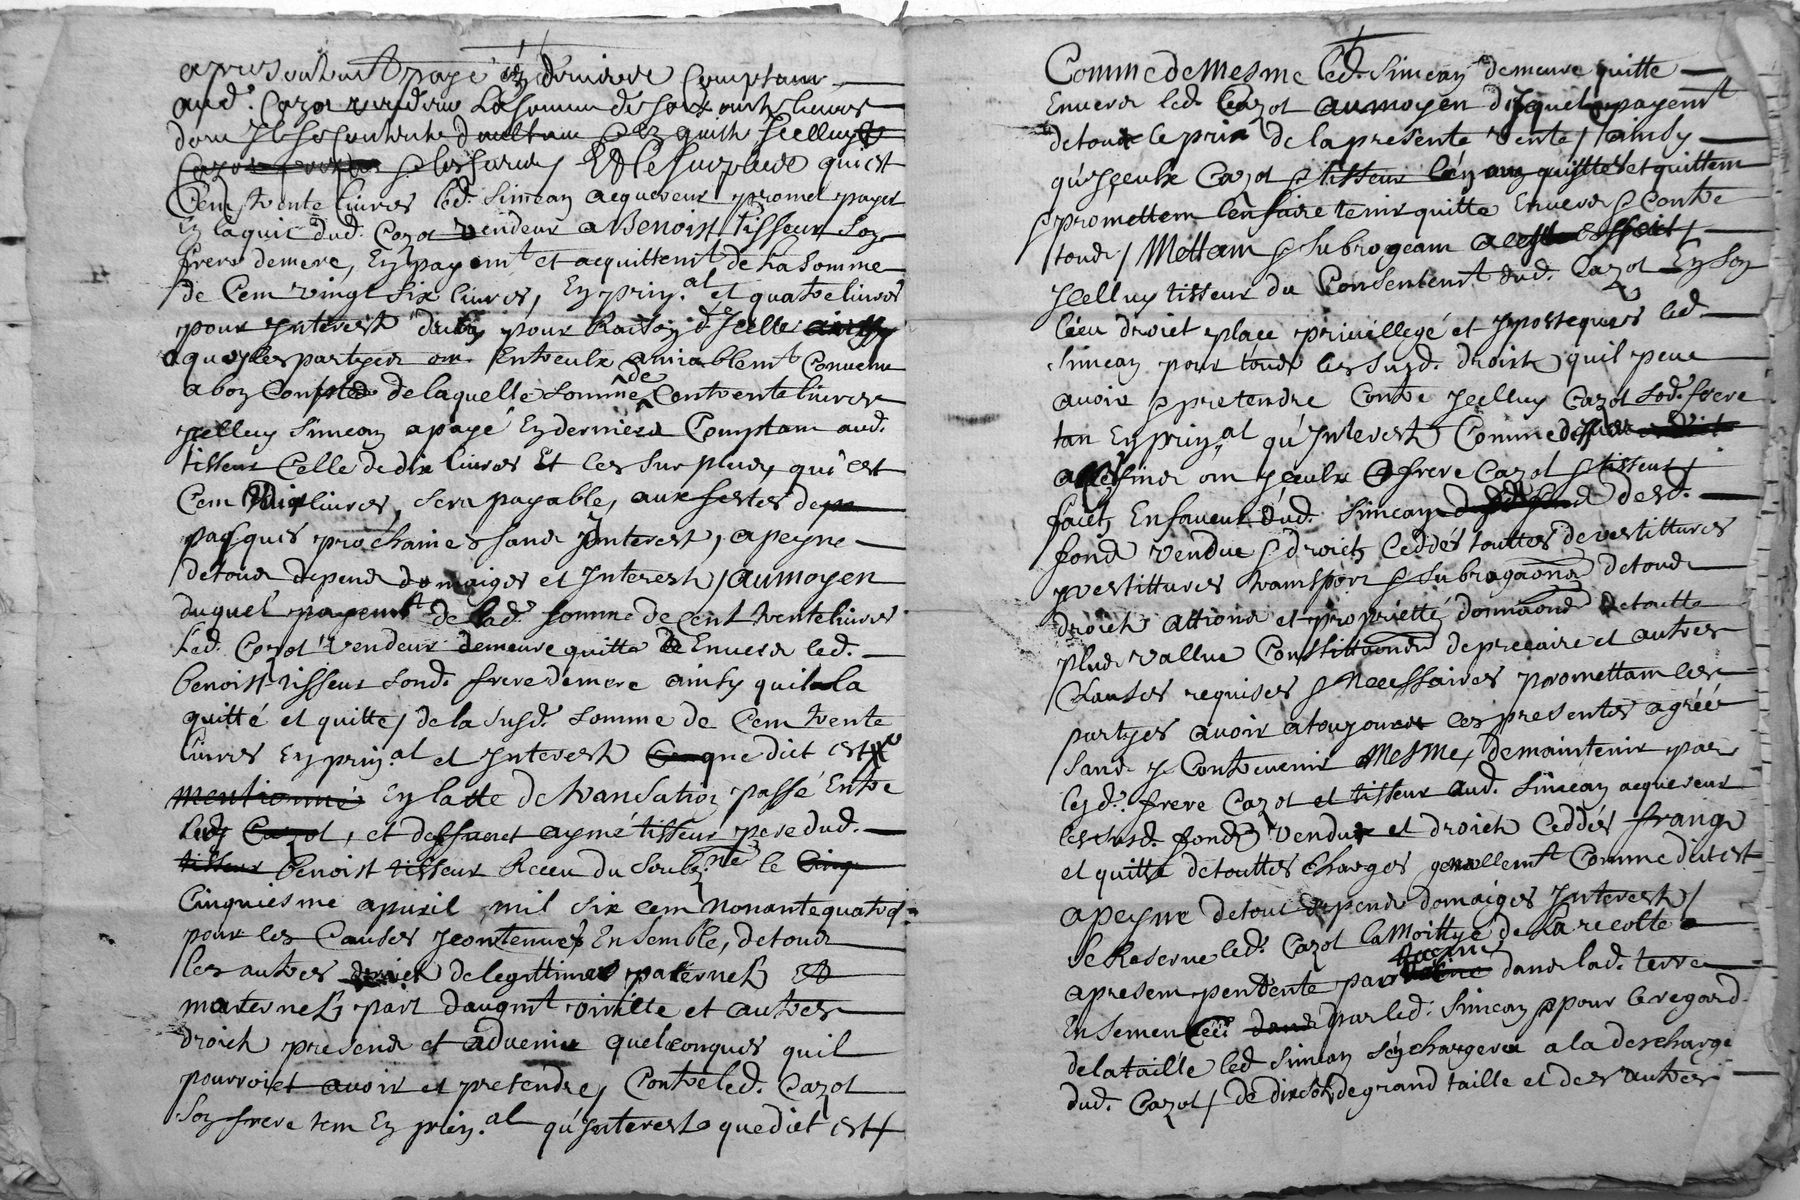 apres contant payé en deniers comptant
aud. Cazot vendeur la somme de soixante livres
dont il se contente et en quitte icelluy
Cazot plus Et le surplus qui est
Cent trente livres led. Simean acquereur promet payer
En laquit dud. Cazot vendeur a Benoist tisseur son
frere de mere, En payemt et acquittemt de la somme
de Cent vingt six livres, En prin.al et quatre livres
pour Interest pour Raison d'Icelle
a quoy les partyes ont Entreulx amiablemt Convenu
a bon Compte de laquelle somme de Cent trente livres
Icelluy Simean a payé En deniers Comptant aud.
tisseur Celle de dix livres Et les surplus, qui est
Cent livres, sera payable, aux festes de
pasques prochaines sans Interest, a peyne
de tous depens domaiges et Interest, au moyen
duquel payemt de lad. somme de Cent trente livres
Led. Cazot vendeur demeure quitte Envers led.
benoist tisseur sond. frere de mere ainsy quil la
quitté et quitte, de la susd. somme de Cent trente
livres En prin.al et Interest que dict est
mentionné En latte de transation passé Entre
Led. Cazot, et deffunct aymé tisseur pere dud.
tisseur benoist tisseur Receu du soubz.né le Cinq
Cinquiesme apvril mil six cent nonante quatre
pour les Causes y contenues Ensemble, de tous
les autres droict de legittimes paternel Et
maternel, part daugmt virille et autres
droict presens et advenir quelconques quil
pourroit avoir et pretendre, Contre led. Cazot
Son frere tem En prin.al qu'Interest que dict est
Comme de Mesme led. Simean demeure quitte
Envers led. Cazot au moyen d'Iquel payemt
de tout le prix de la presente vente, ainsy
qu'Iceulx Cazot & tisseur len quittes et quittent
& promettent len faire tenir quitte Envers & Contre
tous, Mettam & subrogeam a cest Effect,
Icelluy tisseur du Consentemt dud. Cazot En son
lieu droict place privillegé et Ypoteques led.
Simean pour tous les susd. droict quil peut
avoir & pretendre Contre Icelluy Cazot sod. frere
tan En prin.al qu'Interest Comme dessus
a ces fins ont Iceulx frere Cazot & tisseur,
faict, En faveur dud. Simean desd.
fond vendue & droict Ceddés touttes devestittures
vestittures transport & subrogaons de tous
droict attions et proprietté donnaons de toutte
plus vallue Constittuons de precaire et autres
Clauses requises & Necessaires promettam les
partyes avoir a toujours les presentes agréé
sans y Contrevenir Mesme, de maintenir par
lesd. frere Cazot et tisseur aud. Simean acquereur
les susd. fond vendu et droict Ceddés frang
et quitte de touttes charges gnallemt Comme dict est
a peyne de tous depens domaiges Interest,
se Reserve led. Cazot la Moittyé de la recolte
a presem pendente par Racine dans lad. terre
Ensemencée par led. Simean & pour le regard
de la taille led Simean sen chargera a la descharge
dud. Cazot, de dix sols de grand taille et des autres